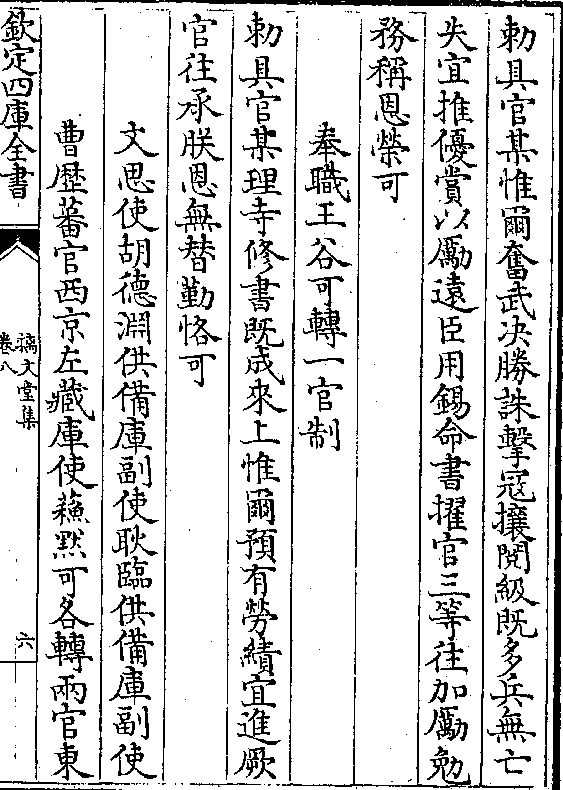 勅具官某惟爾奮武決勝誅擊寇攘閱級既多兵無亡
失宜推優賞以勵遠臣用錫命書擢官三等往加勵勉
務稱恩榮可
奉職王谷可轉一官制
勅具官某理寺修書既成來上惟爾預有勞績宜進厥
官往承朕恩無替勤恪可
文思使胡德淵供備庫副使耿臨供備庫副使
曹歴蕃官西京左藏庫使蘓黙可各轉兩官東
欽定四庫全書
摛文堂集
卷八
六